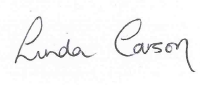 Linda Carson